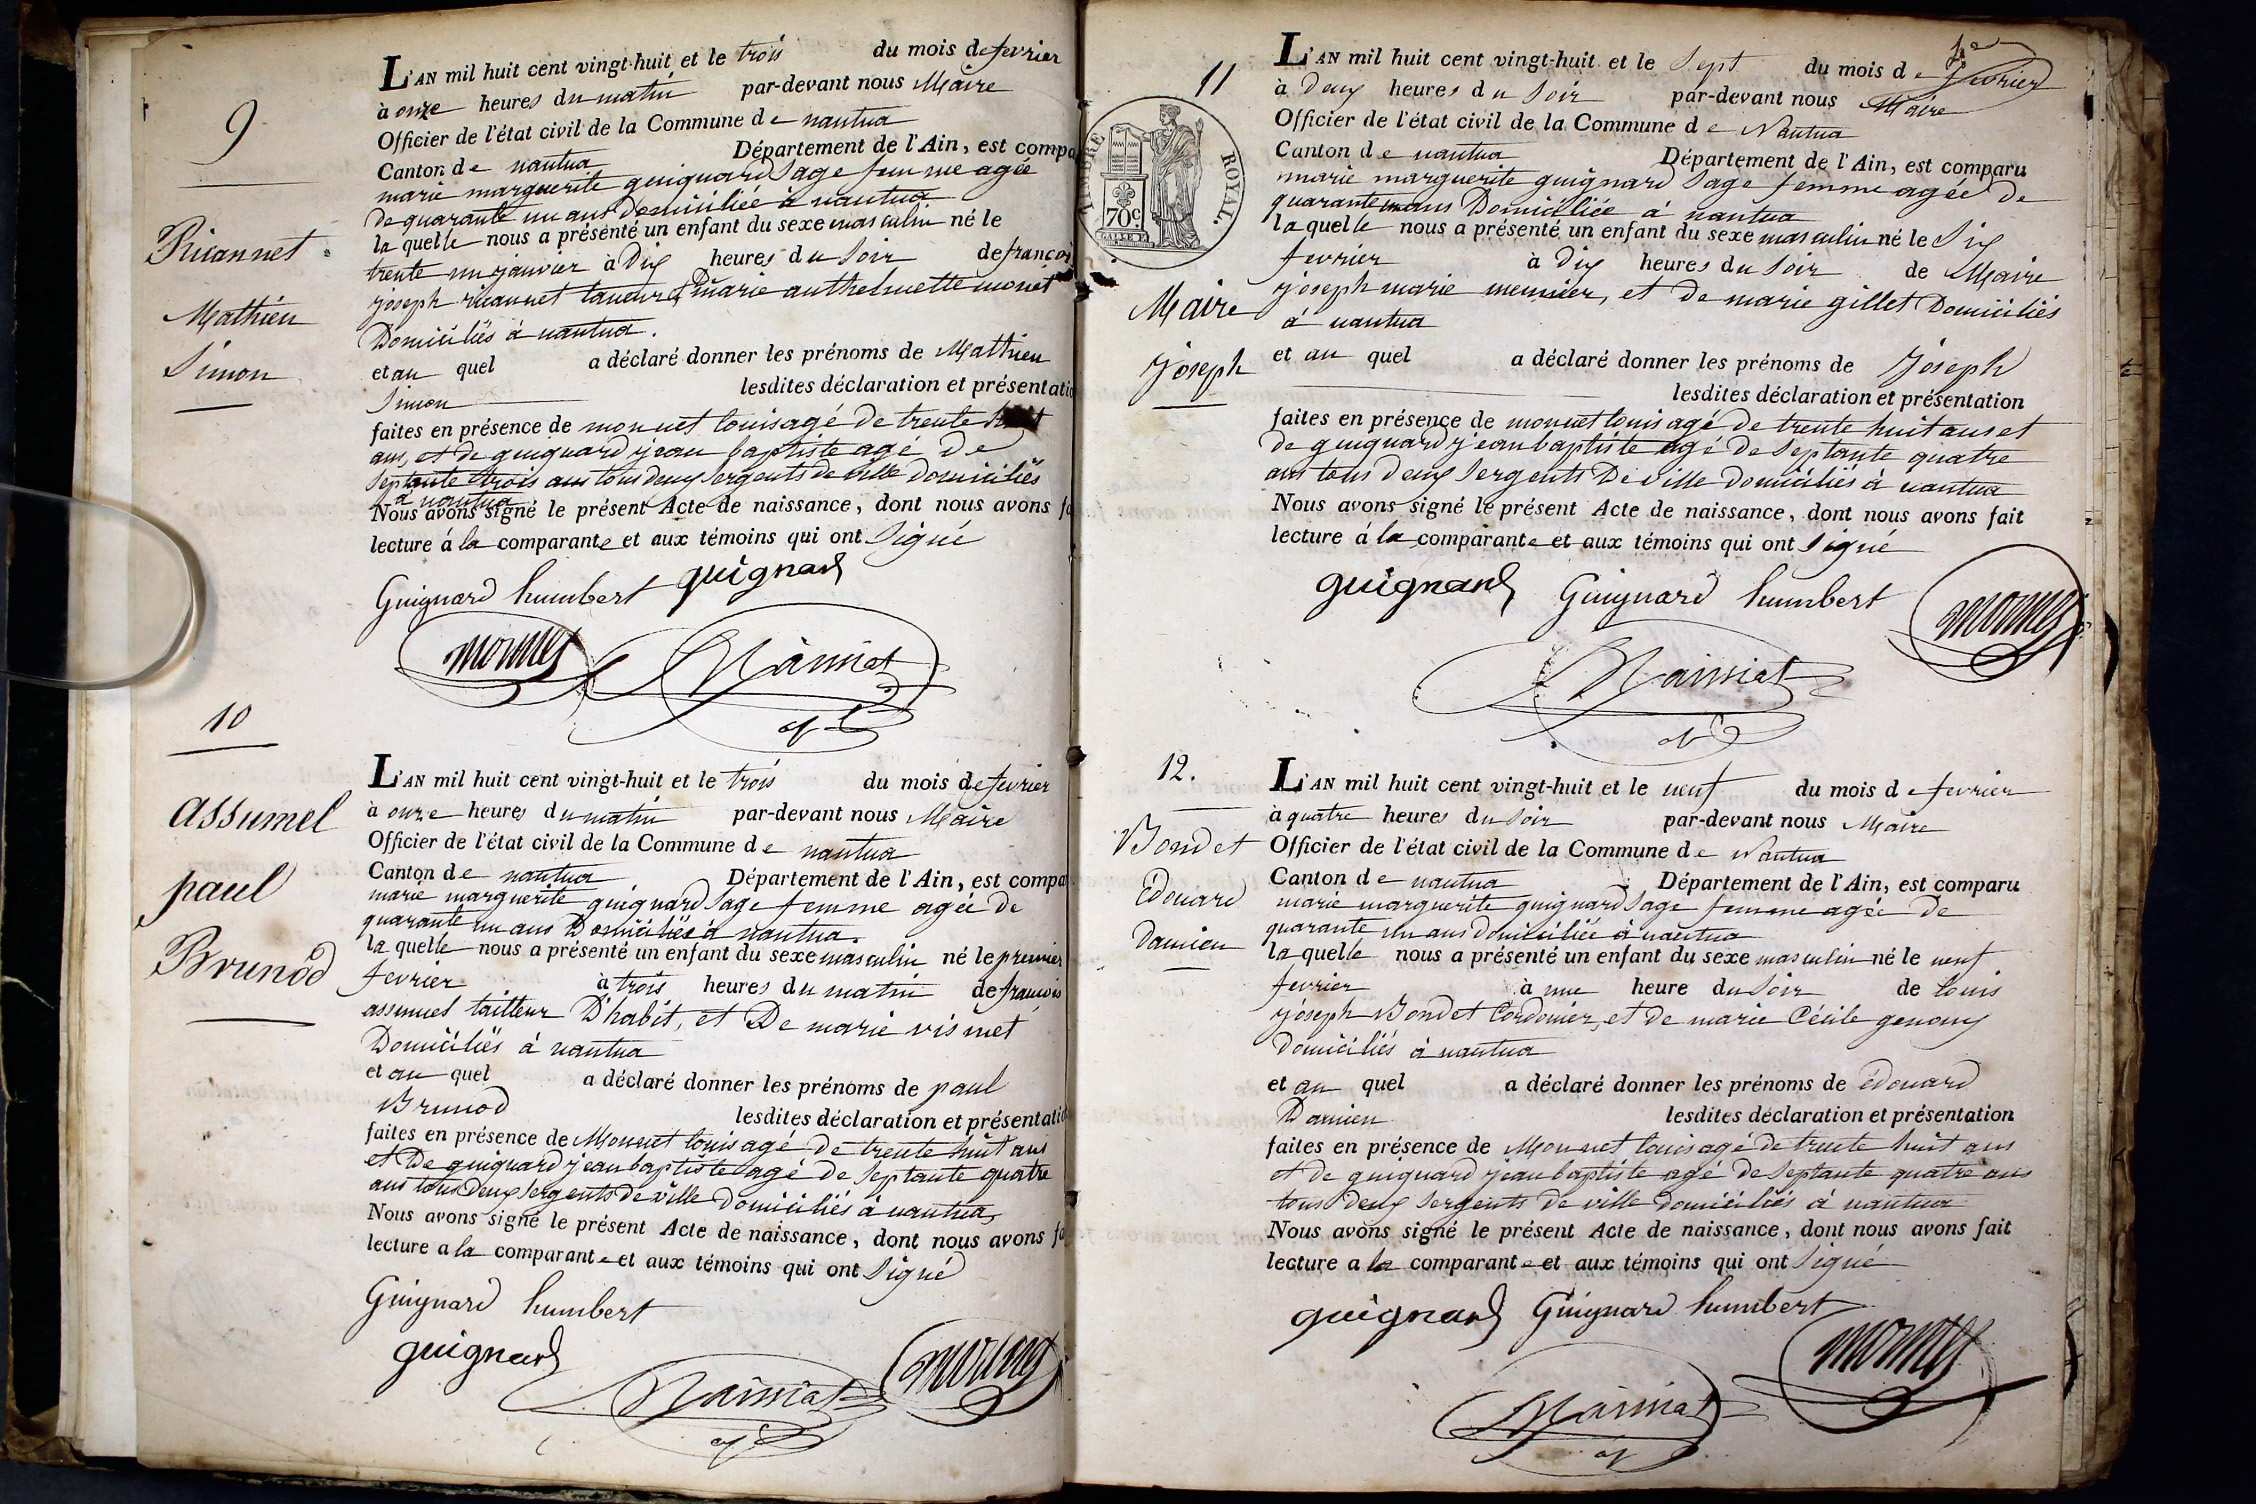 9
Ricannet
Mathieu
Simon
L'AN mil huit cent vingt-huit et le trois du mois de fevrier
à onze heures du matin par-devant nous Maire
Officier de l'état civil de la Commune de nantua
Canton de nantua Département de l'Ain, est compa
marie marguerite guignard Sage femme agée
de quarante un ans Domiciliée à nantua
laquelle nous a présenté un enfant du sexe masculin né le
trente un janvier à Dix heures du Soir de françois
joseph ricannet taneur & marie anthelmette monet
Domiciliés à nantua.
et au quel a déclaré donner les prénoms de Mathieu
Simon lesdites déclaration et présentatio
faites en présence de monnet louis agé De trente huit
ans, et de guignard jean baptiste agé De
Septante trois ans tous deux Sergents de ville domiciliés
à nantua
Nous avons signé le présent Acte de naissance, dont nous avons fa
lecture à la comparante et aux témoins qui ont Signé
Guignard humbert guignard
monnet Mainiat
10
assumel
paul
Brunod
L'AN mil huit cent vingt-huit et le trois du mois de fevrier
à onze heures du matin par-devant nous Maire
Officier de l'état civil de la Commune de nantua
Canton de nantua Département de l'Ain, est compa
marie marguerite guignard Sage femme agée De
quarante un ans Domiciliée à nantua.
laquelle nous a présenté un enfant du sexe masculin né le premier
fevrier à trois heures du matin de françois
assumel tailleur D'habit, et De marie vismet
Domiciliés à nantua
et au quel a déclaré donner les prénoms de paul
Brunod lesdites déclaration et présentatio
faites en présence de Monnet louis agé De trente huit ans
et De guignard jean baptiste agé De Septante quatre
ans tous Deux Sergents de ville Domiciliés à nantua,
Nous avons signé le présent Acte de naissance, dont nous avons fa
lecture a la comparante et aux témoins qui ont Signé
Guignard humbert
guignard
Mainiat monnet
11
TIMBRE ROYAL.
70c.
Maire
Joseph
L'AN mil huit cent vingt-huit et le Sept du mois de fevrier
à Deux heures du Soir par-devant nous Maire
Officier de l'état civil de la Commune de Nantua
Canton de nantua Département de l'Ain, est comparu
marie marguerite guignard Sage femme agée De
quarante un ans Domiciliée à nantua
laquelle nous a présenté un enfant du sexe masculin né le Six
fevrier à Dix heures du Soir de Maire
joseph marie menuier, et De marie gillet Domiciliés
à nantua
et au quel a déclaré donner les prénoms de Joseph
lesdites déclaration et présentation
faites en présence de monnet louis agé De trente huit ans et
de guignard jean baptiste agé De Septante quatre
ans tous deux Sergents De ville Domiciliés à nantua
Nous avons signé le présent Acte de naissance, dont nous avons fait
lecture à la comparante et aux témoins qui ont Signé
guignard Guignard humbert monnet
Mainiat
12.
Bondet
Édouard
Damien
L'AN mil huit cent vingt-huit et le neuf du mois de fevrier
à quatre heures du Soir par-devant nous Maire
Officier de l'état civil de la Commune de Nantua
Canton de nantua Département de l'Ain, est comparu
marie marguerite guignard Sage femme agée De
quarante un ans domiciliée à nantua
laquelle nous a présenté un enfant du sexe masculin né le neuf
fevrier à une heure du Soir de louis
joseph Bondet Cordonier, et de marie Cécile genoux
domiciliés à nantua
et au quel a déclaré donner les prénoms de édouard
Damien lesdites déclaration et présentation
faites en présence de Monnet louis agé de trente huit ans
et de guignard jean baptiste agé de Septante quatre ans
tous Deux Sergents de ville domiciliés à nantua
Nous avons signé le présent Acte de naissance, dont nous avons fait
lecture a la comparante et aux témoins qui ont Signé
guignard Guignard humbert
monnet
Mainiat